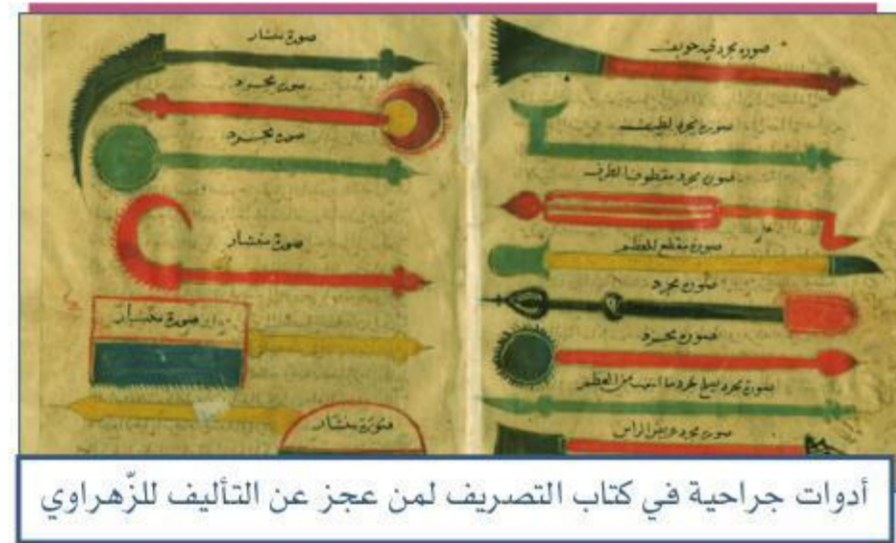 صورة مجرد فيه تجويف
صورة مجرد لطيف
صورة مجرد معطوف الطرف
صورة مقطع للعظم
صورة مجرد
صورة مجرد
صورة مجرد يصلح لجرد ما من العظم
صورة مجرد عريض الراس
صورة منشار
صورة مجرد
صورة مجرد
صورة منشار
صورة منشار
صورة منشار
أدوات جراحية في كتاب التصريف لمن عجز عن التأليف للزّهراوي